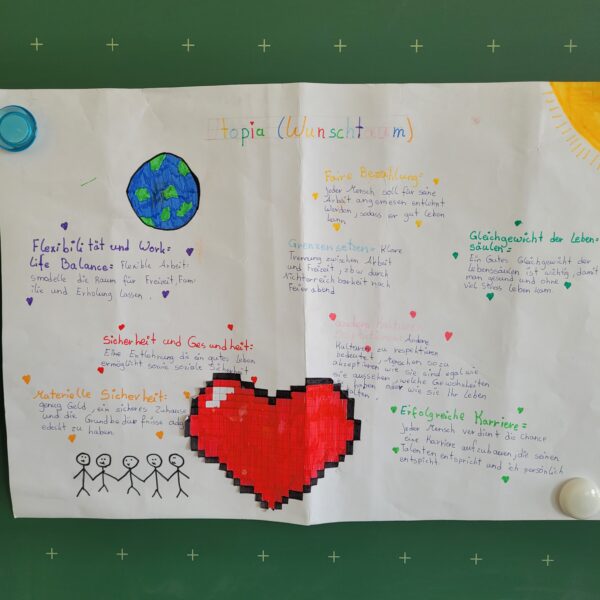 topia (Wunschtraum)
Faire Bezahlung:
Jeder Mensch soll für seine
Arbeit angemesen entlohnt
werden, sodass er gut leben
kann.
Flexibilität und Work=
Life Balance= Flexible Arbeit
smodelle die Raum für Freizeit, Fam
ilie und Erholung lassen.
Grenzen setzen= Klare
Trennung zwischen Arbeit
und Freizeit, zbw durch
nichterreichbarkeit nach
Feierabend
Gleichgewicht der Leben=
säulen=
Ein Gutes Gleichgewicht der
Lebenssäulen ist wichtig, damit
man gesund und ohne
viel Stress leben kann.
Sicherheit und Gesundheit:
Eine Entlohnung die ein gutes Leben
ermöglicht sowie soziale Sicherheit
Andere Kulturen
Andere
Kulturen zu respektieren
bedeutet, Menschen so zu
akzeptieren wie sie sind egal wie
sie aussehen, welche Gewohnheiten
haben oder wie sie ihr Leben
Materielle Sicherheit:
genug Geld, ein sicheres Zuhause
und die Grundbedürfnisse
edeckt zu haben.
Erfolgreiche Karriere=
Jeder Mensch verdient die Chance
eine Karriere aufzubauen, die seinen
Talenten entspricht und ich persönlich
entspicht.